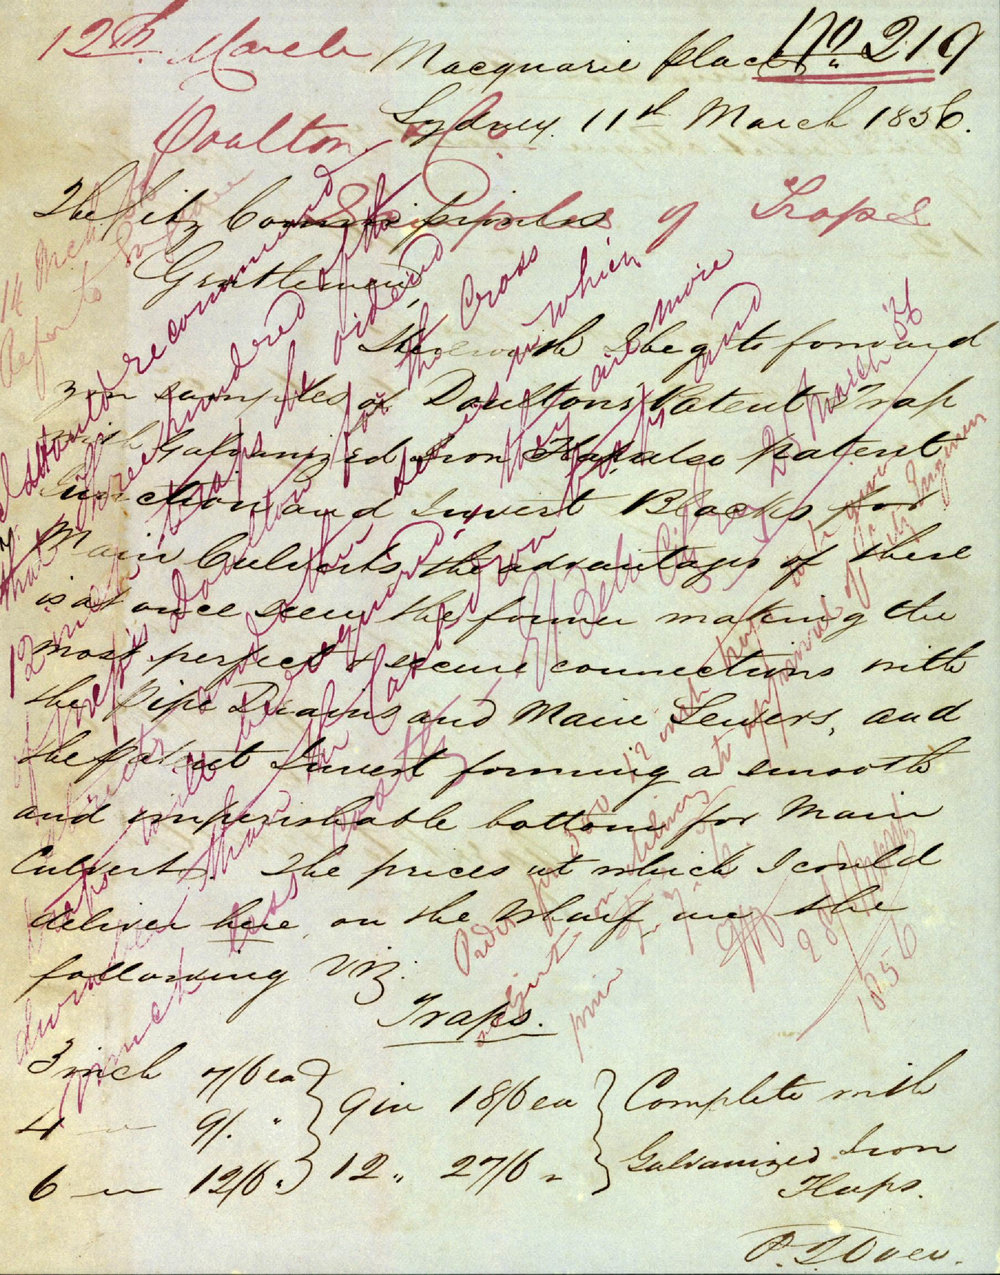 No. 219
12th. March
Macquarie Place
Sydney. 11th March 1856.
Doulton
Samples of Traps
The City Commissioners
Gentlemen,
Herewith I beg to forward
you samples of Doultons Patent Trap
with Galvanized Iron Flap, also Patent
Junction and Invert Blocks for
Main Culverts, the advantages of these
is at once seen, the former making the
most perfect & secure connections with
the Pipe Drains and Main Sewers, and
the Patent Invert forming a smooth
and imperishable bottom for Main
Culverts. The prices at which I could
deliver here, on the Wharf are the
following Viz.
Traps.
3 inch 7/6 ea
4 " 9/. " 9 in 18/6 ea Complete with
6 " 12/6 " 12 " 27/6 " Galvanized Iron
Flaps.
P.T.Over.
14 March 56
Refer to
I should recommend
that three hundred of the
12 inch traps be ordered
of Messrs Doulton for the Cross
and other sewers in which
traps will be required, they are more
than the Cast Iron traps and
much less costly
E Bell City Eng 25 March 56
Order for 300 12 inch traps to be given
subject to approval of City Engineer
28 March
1856